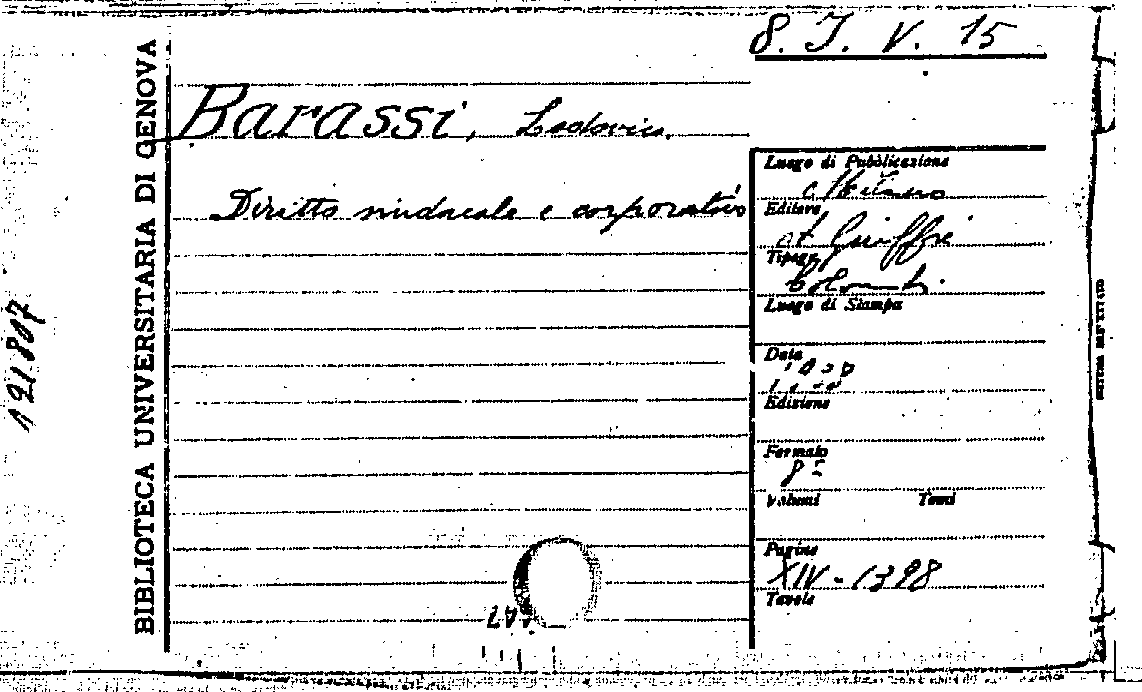 8. I. V. 15
BIBLIOTECA UNIVERSITARIA DI GENOVA
Barassi, Lodovico.
Diritto sindacale e corporativo
Luogo di Pubblicazione
Milano
Editore
A. Giuffrè
Tipogr.
Luogo di Stampa
Data
Edizione
Formato
8º
Volumi Tomi
Pagine
XIV-1398
Tavole
121807